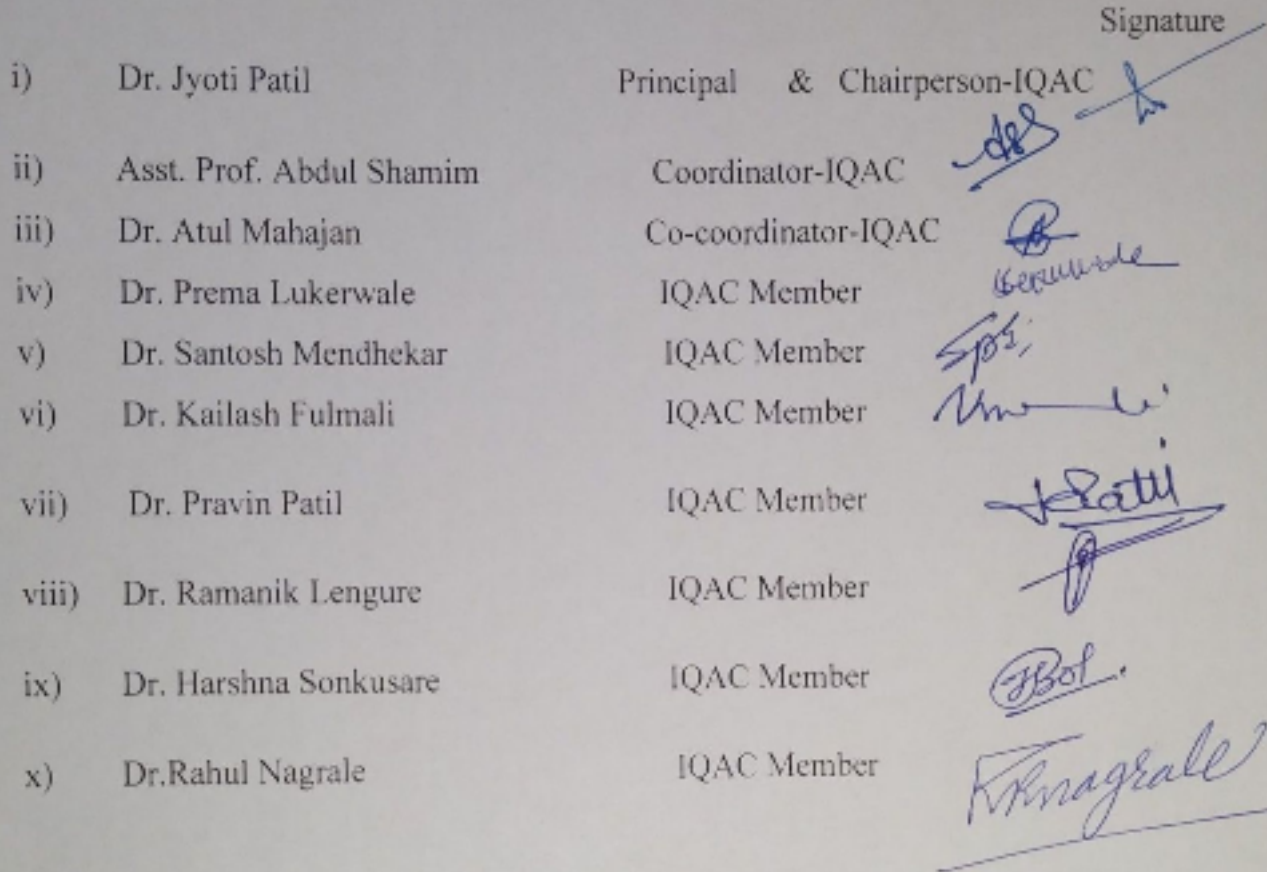 Signature
i) Dr. Jyoti Patil Principal & Chairperson-IQAC
ii) Asst. Prof. Abdul Shamim Coordinator-IQAC
iii) Dr. Atul Mahajan Co-coordinator-IQAC
iv) Dr. Prema Lukerwale IQAC Member
v) Dr. Santosh Mendhekar IQAC Member
vi) Dr. Kailash Fulmali IQAC Member
vii) Dr. Pravin Patil IQAC Member
viii) Dr. Ramanik Lengure IQAC Member
ix) Dr. Harshna Sonkusare IQAC Member
x) Dr.Rahul Nagrale IQAC Member